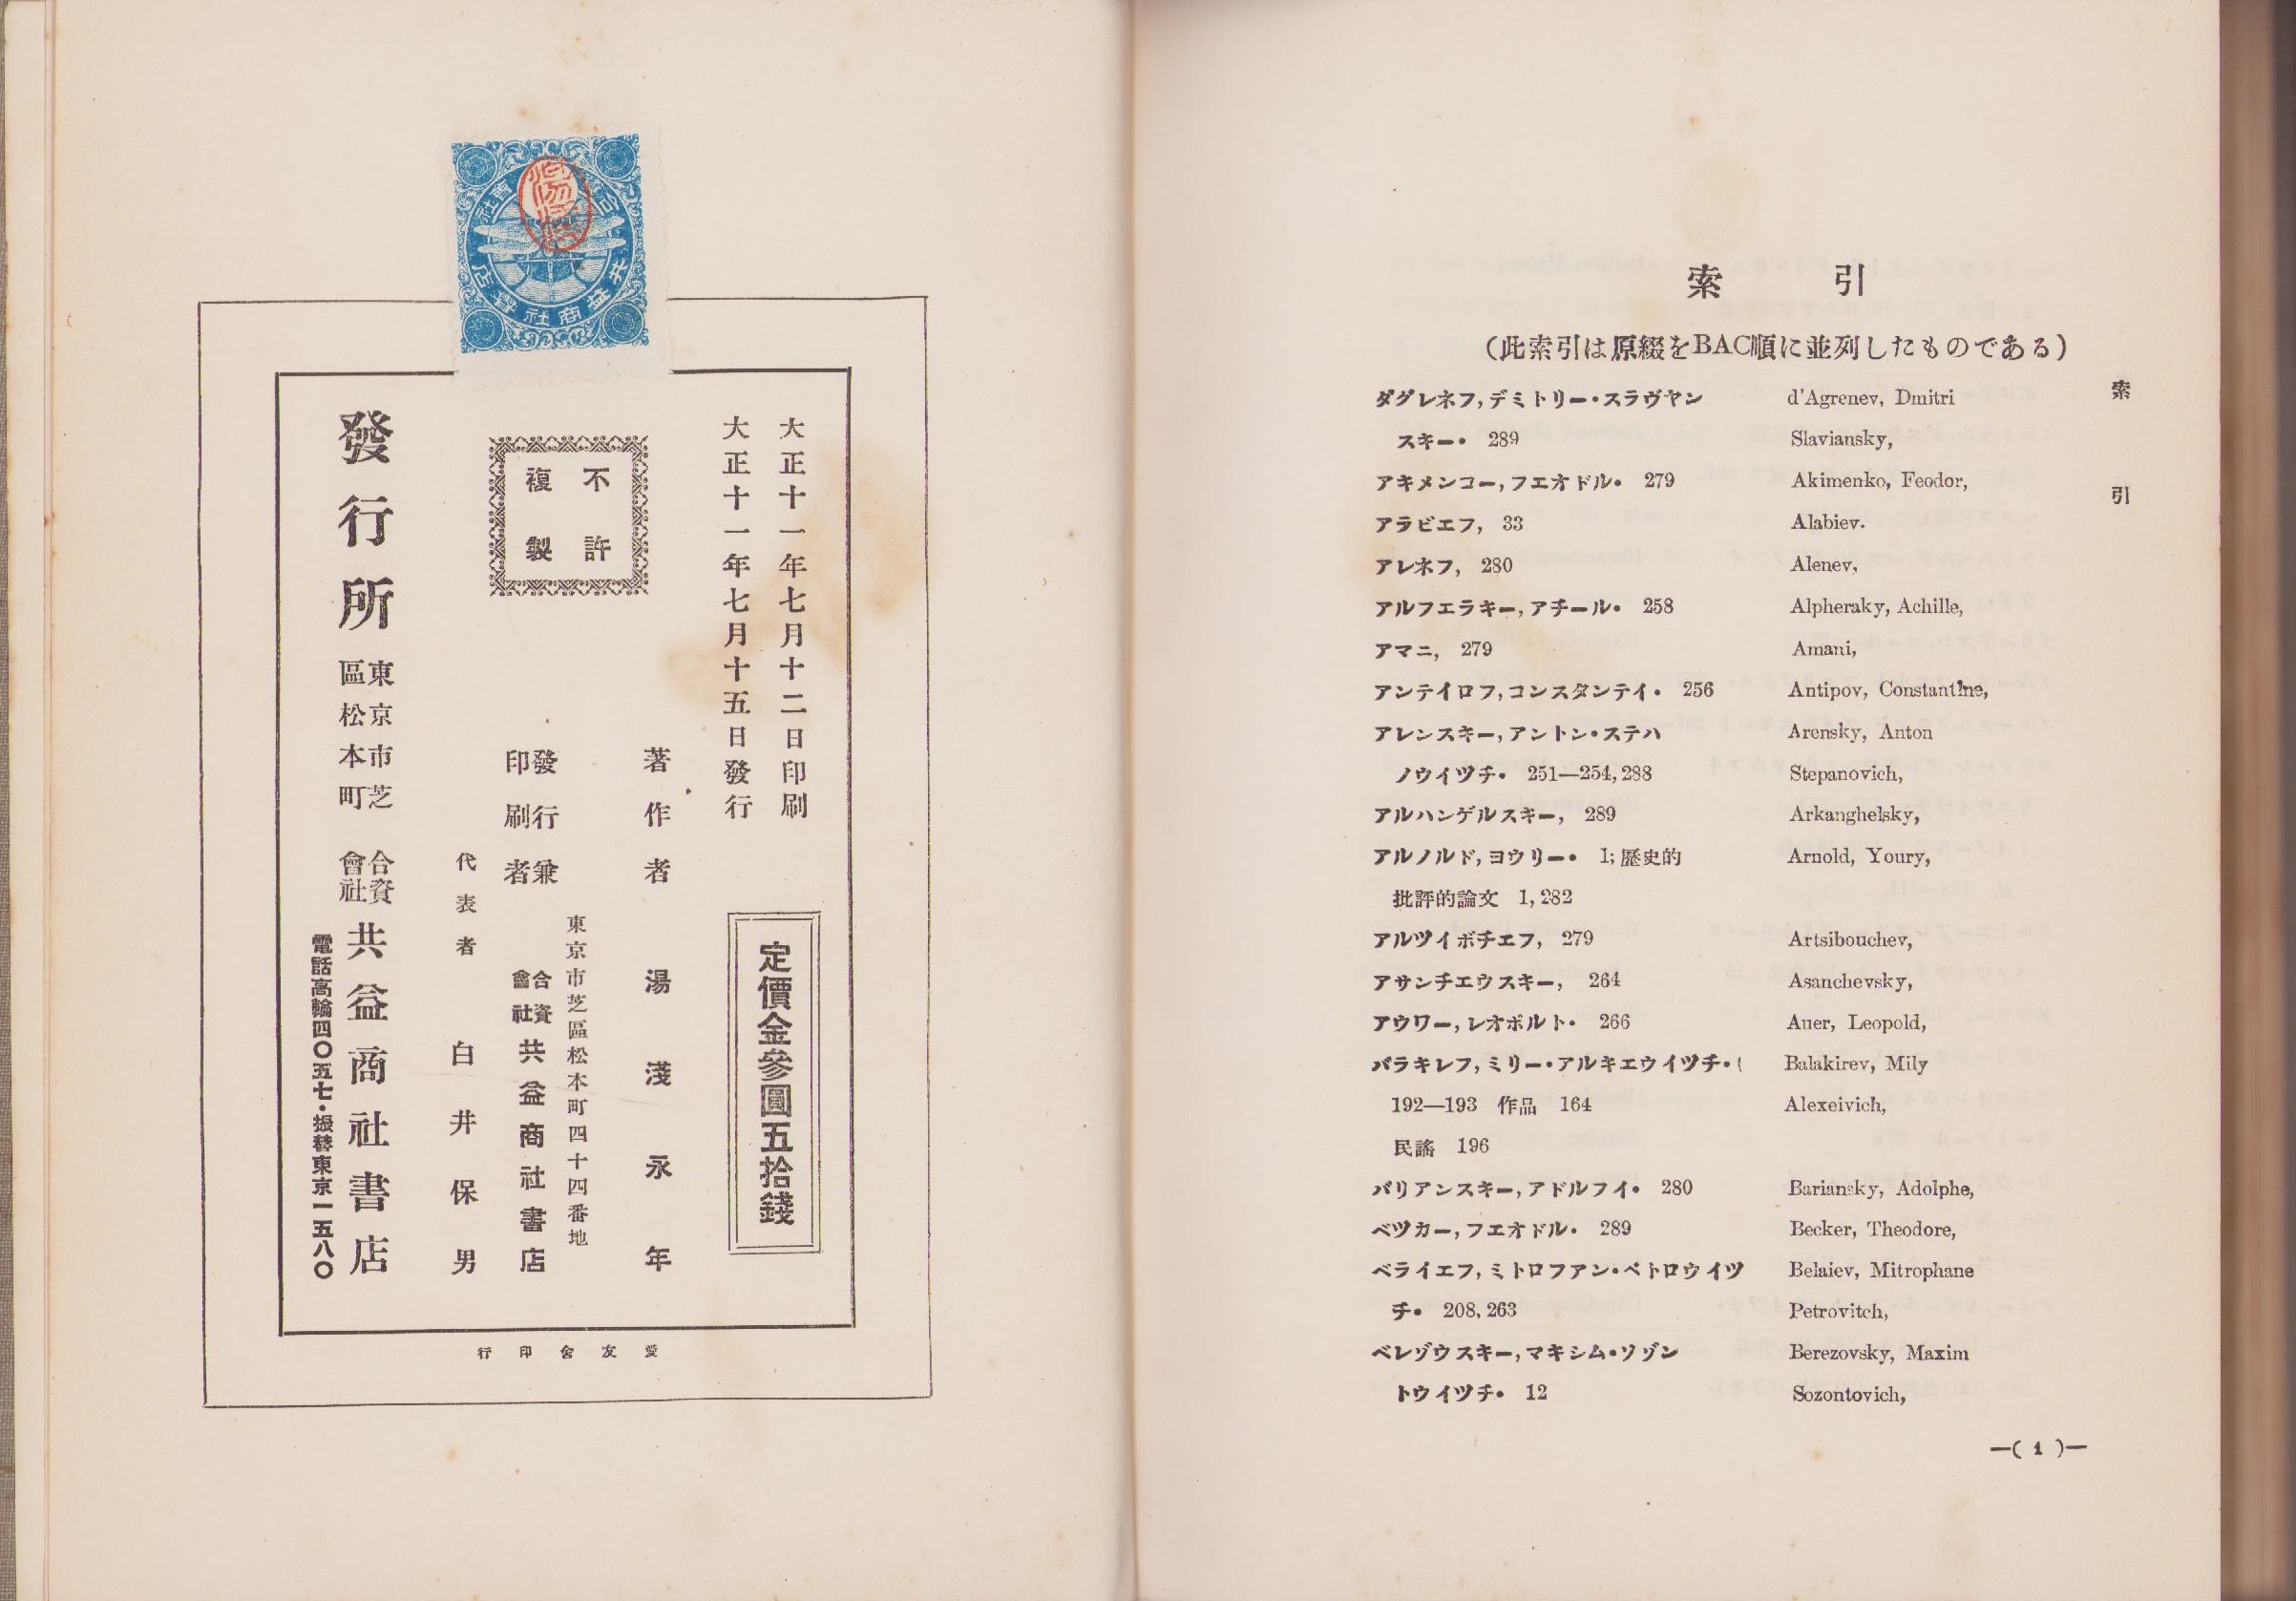 大正十一年七月十二日印刷
大正十一年七月十五日發行
定價金參圓五拾錢
不許
複製
著作者 湯淺永年
發行兼
印刷者
東京市芝區松本町四十四番地
合資
會社
共益商社書店
代表者 白井保男
發行所
東京市芝
區松本町
合資
會社
共益商社書店
電話高輪四〇五七・振替東京一五八〇
愛友舍印行
共益商社書店
索引
(此索引は原綴をBAC順に並列したものである)
ダグレネフ,デミトリー・スラヴヤン d'Agrenev, Dmitri
スキー・ 289 Slaviansky,
アキメンコー,フエオドル・ 279 Akimenko, Feodor,
アラビエフ, 33 Alabiev.
アレネフ, 280 Alenev,
アルフエラキー,アチール・ 258 Alpheraky, Achille,
アマニ, 279 Amani,
アンテイロフ,コンスタンテイ・ 256 Antipov, Constantine,
アレンスキー,アントン・ステハ Arensky, Anton
ノウイツチ・ 251—254,288 Stepanovich,
アルハンゲルスキー, 289 Arkanghelsky,
アルノルド,ヨウリー・ 1;歴史的 Arnold, Youry,
批評的論文 1,282
アルツイボチエフ, 279 Artsibouchev,
アサンチエウスキー, 264 Asanchevsky,
アウワー,レオポルト・ 266 Auer, Leopold,
バラキレフ,ミリー・アルキエウイツチ・( Balakirev, Mily
192—193 作品 164 Alexeivich,
民謠 196
バリアンスキー,アドルフイ・ 280 Bariansky, Adolphe,
ベツカー,フエオドル・ 289 Becker, Theodore,
ベライエフ,ミトロフアン・ペトロウイツ Belaiev, Mitrophane
チ・ 208,263 Petrovitch,
ベレゾウスキー,マキシム・ソゾン Berezovsky, Maxim
トウイツチ・ 12 Sozontovich,
索引
—( 1 )—